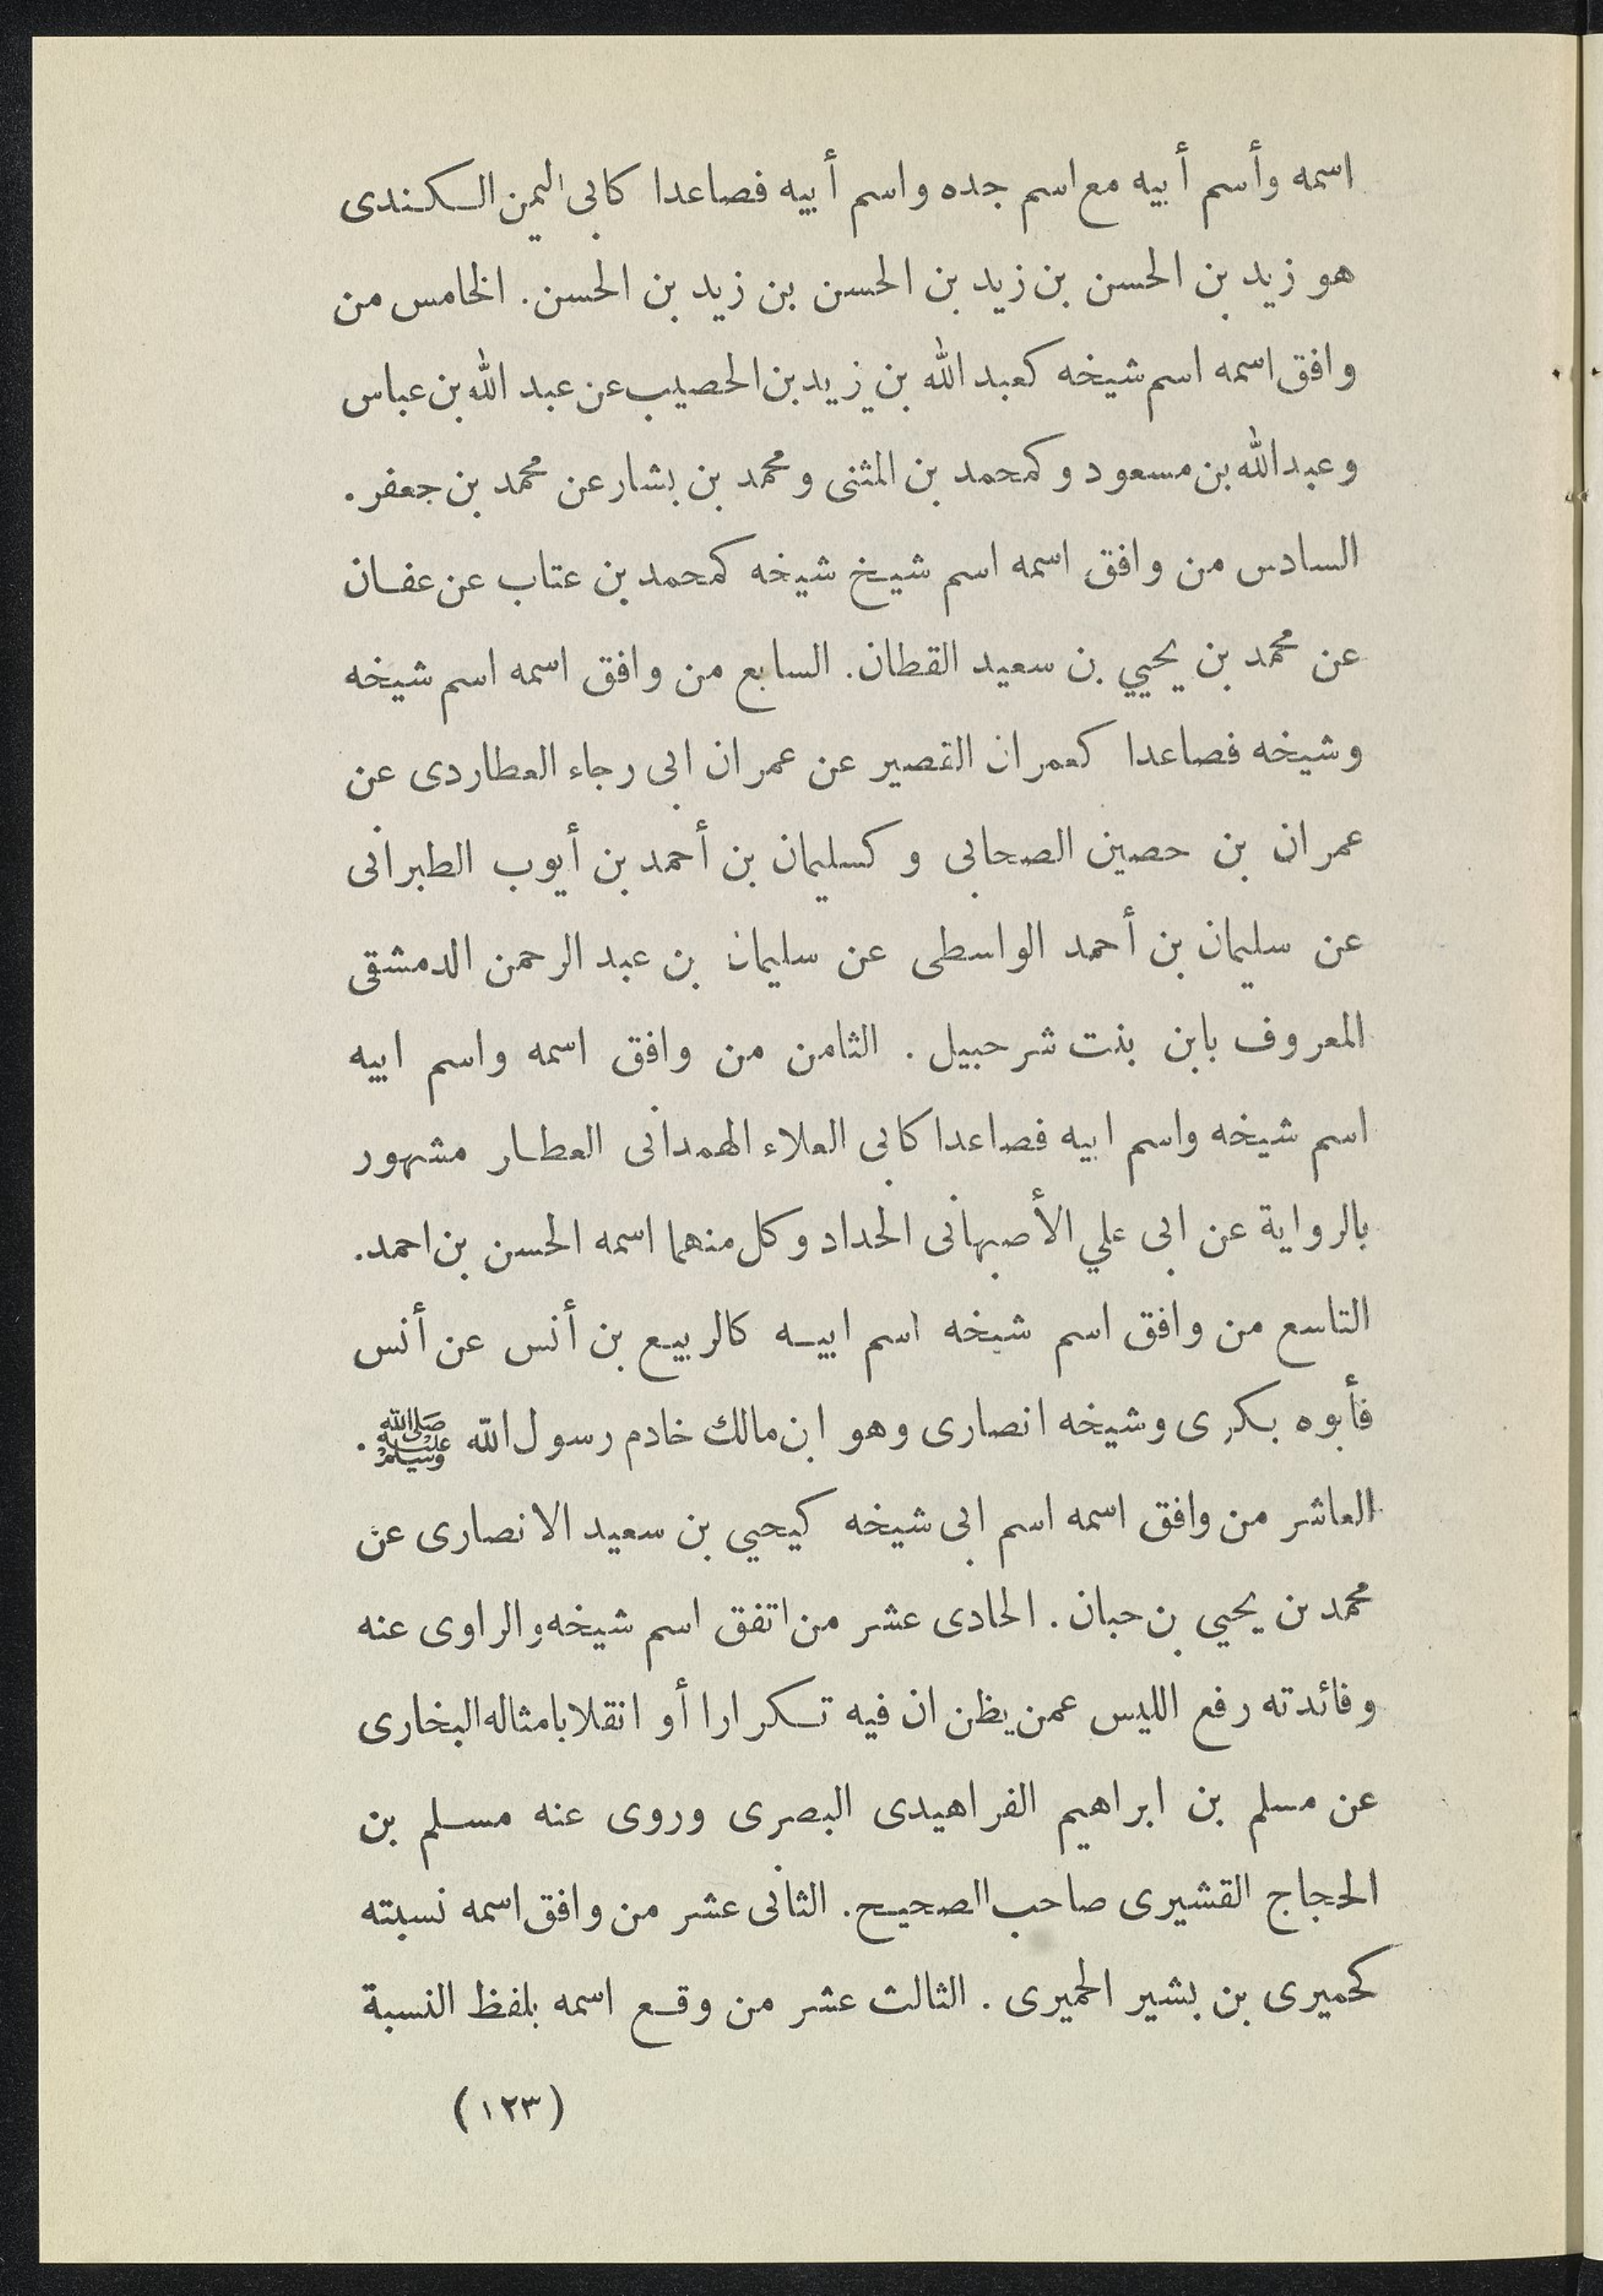 اسمه وأسم أبيه مع اسم جده واسم أبيه فصاعدا كابى اليمن الكندى
هو زيد بن الحسن بن زيد بن الحسن بن زيد بن الحسن. الخامس من
وافق اسمه اسم شيخه كعبد الله بن زيد بن الحصيب عن عبد الله بن عباس
وعبد الله بن مسعود وكمحمد بن المثنى ومحمد بن بشار عن محمد بن جعفر.
السادس من وافق اسمه اسم شيخ شيخه كمحمد بن عتاب عن عفان
عن محمد بن يحيي بن سعيد القطان. السابع من وافق اسمه اسم شيخه
وشيخه فصاعدا كعمران القصير عن عمران ابى رجاء العطاردى عن
عمران بن حصين الصحابى وكسليمان بن أحمد بن أيوب الطبرانى
عن سليمان بن أحمد الواسطى عن سليمان بن عبد الرحمن الدمشقى
المعروف بابن بنت شرحبيل. الثامن من وافق اسمه واسم ابيه
اسم شيخه واسم ابيه فصاعدا كابى العلاء الهمدانى العطار مشهور
بالرواية عن ابى علي الأصبهانى الحداد وكل منهما اسمه الحسن بن احمد.
التاسع من وافق اسم شيخه اسم ابيه كالربيع بن أنس عن أنس
فأبوه بكرى وشيخه انصارى وهو ابن مالك خادم رسول الله ﷺ.
العاشر من وافق اسمه اسم ابى شيخه كيحيي بن سعيد الانصارى عن
محمد بن يحيي بن حبان. الحادى عشر من اتفق اسم شيخه والراوى عنه
وفائدته رفع الليس عمن يظن ان فيه تكرارا أو انقلابا مثاله البخارى
عن مسلم بن ابراهيم الفراهيدى البصرى وروى عنه مسلم بن
الحجاج القشيرى صاحب الصحيح. الثانى عشر من وافق اسمه نسبته
كحميرى بن بشير الحميرى. الثالث عشر من وقع اسمه بلفظ النسبة
(١٢٣)